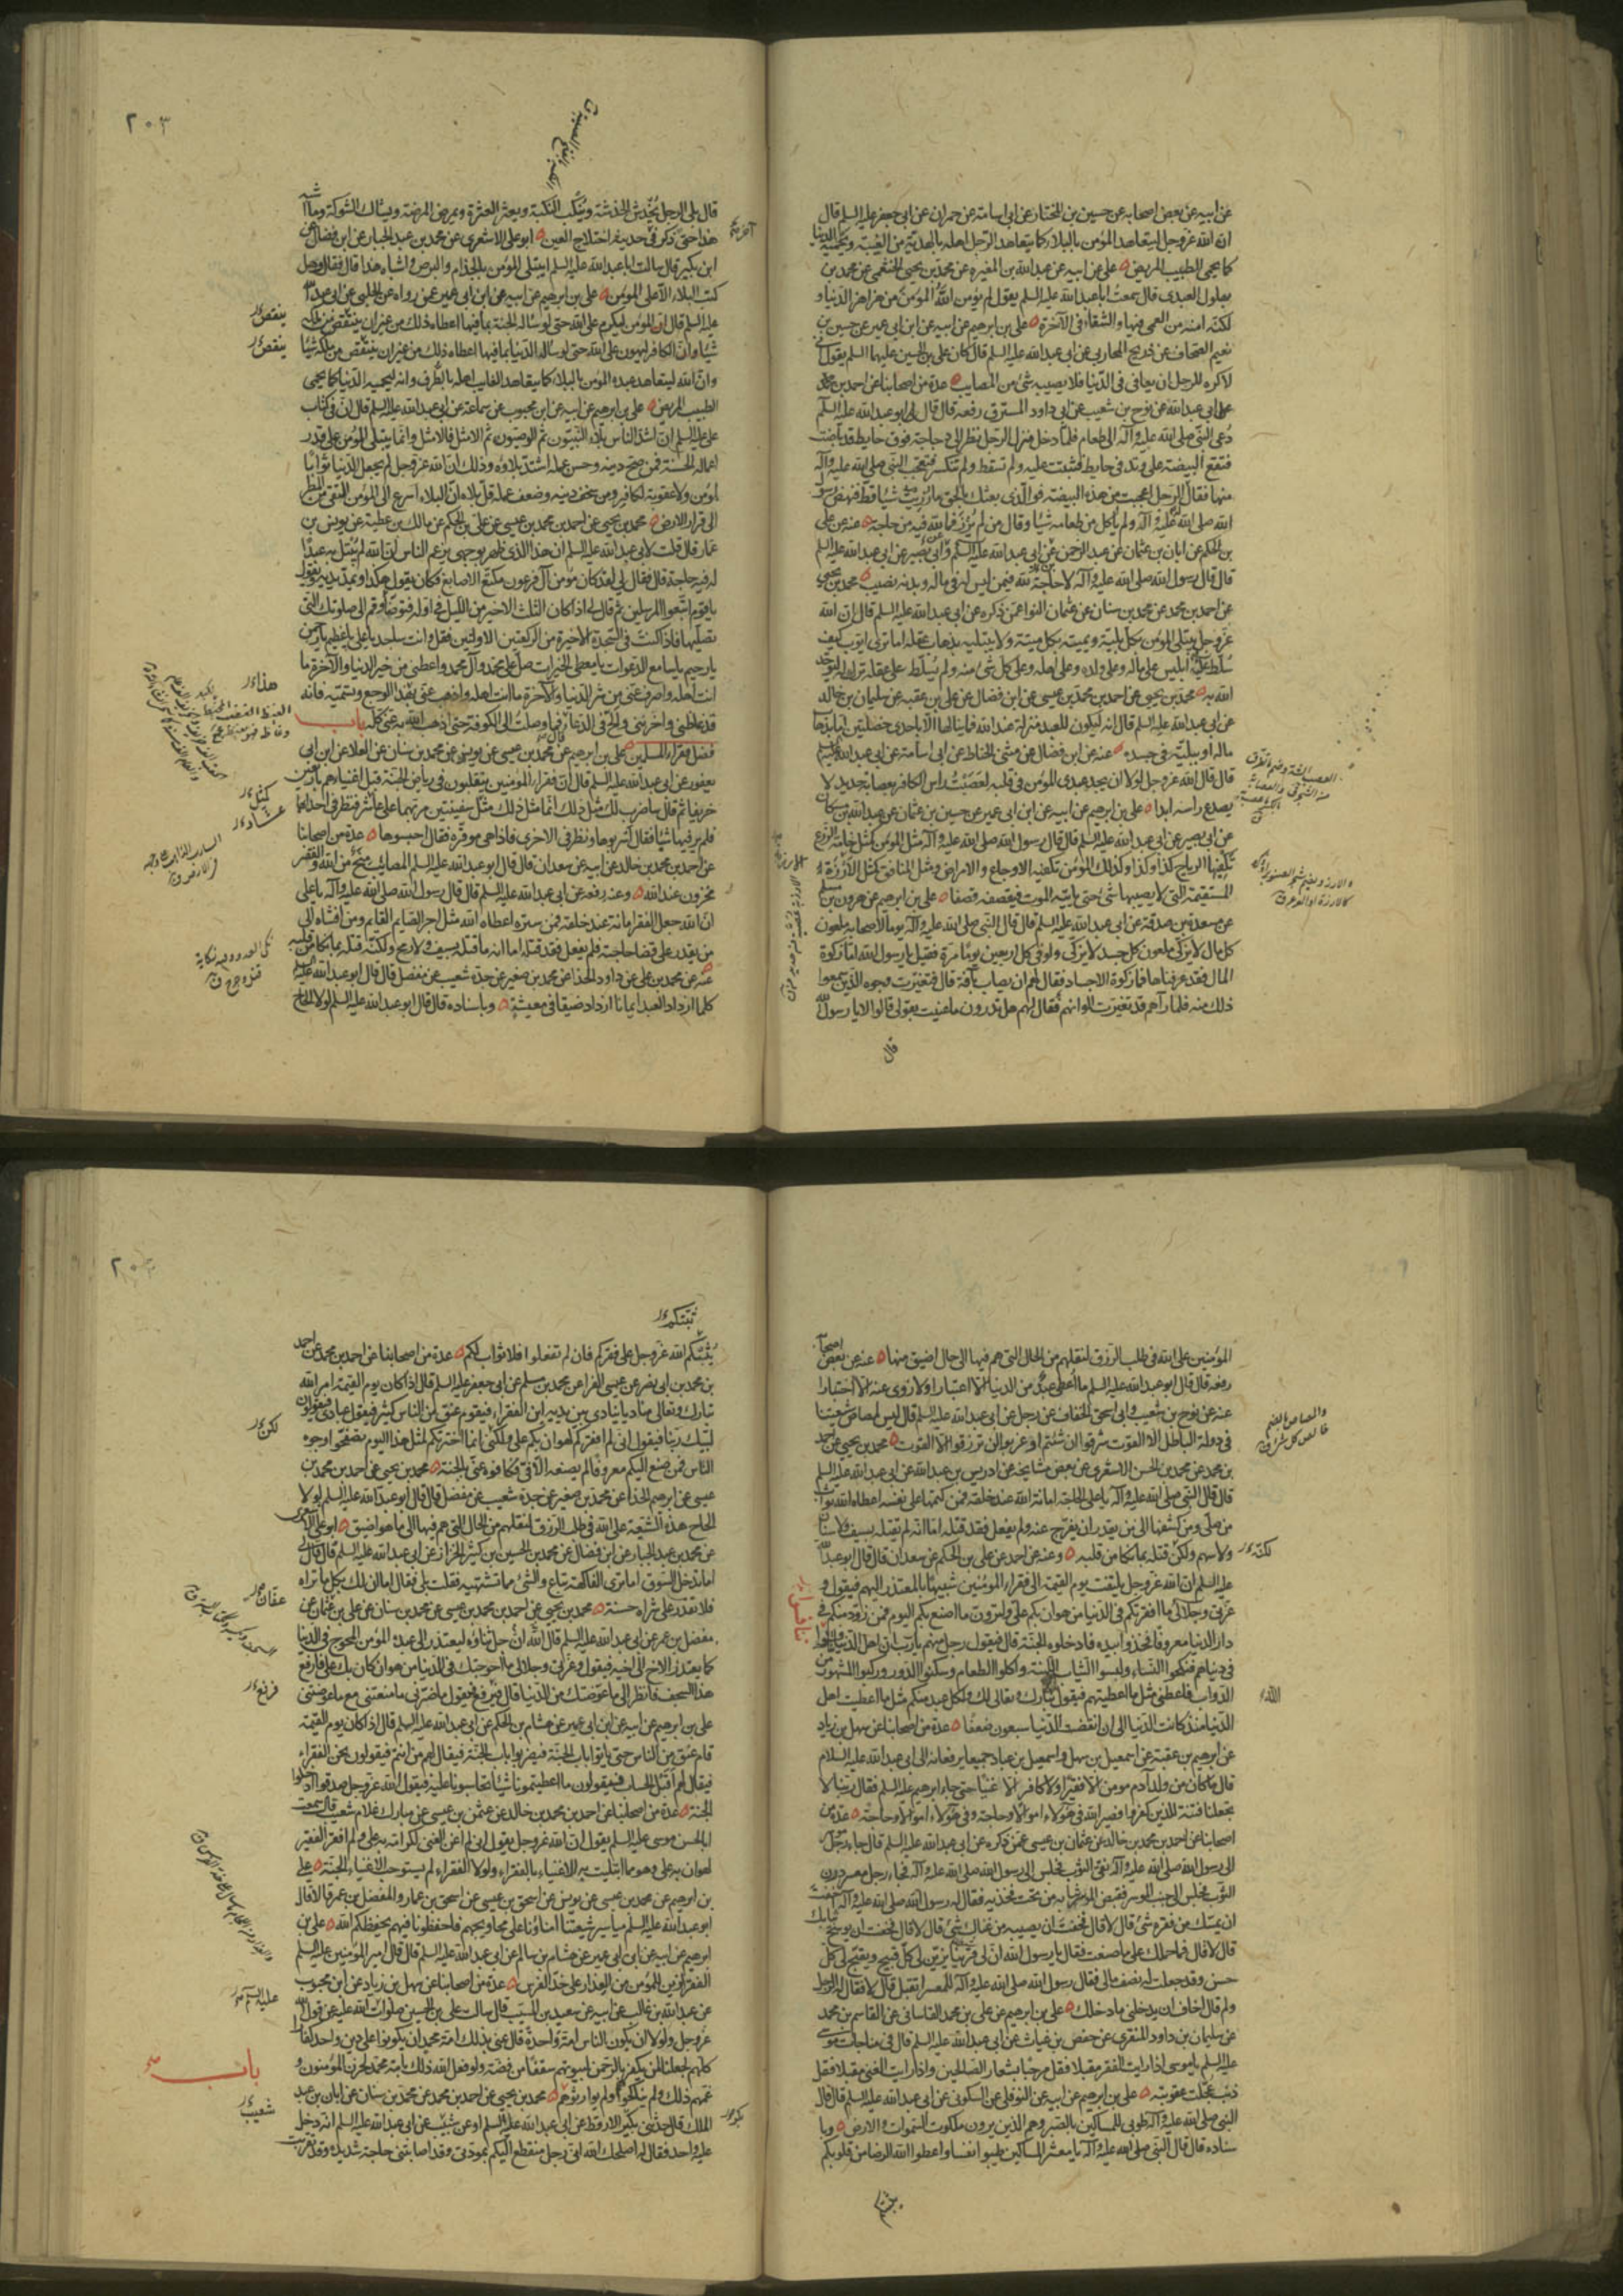 عن ابيه عن بعض اصحابه عن حسين بن المختار عن ابى اسامة عن حمران عن ابى جعفر عليه السلم قال
ان الله عز وجل ليتعاهد المؤمن بالبلاء كما يتعاهد الرجل اهله بالهدية من الغيبة ويحميه الدنيا
كما يحمى الطبيب المريض علي عن ابيه عن عبدالله بن المغيرة عن محمد بن يحيى الخثعمى عن محمد بن
بهلول العبدى قال سمعت ابا عبدالله عليه السلم يقول لم يؤمن الله المؤمن من هزاهز الدنيا و
لكنه امنه من العمى فيها والشقاء فى الآخرة على بن ابرهيم عن ابيه عن ابن ابى عمير عن حسين بن
نعيم الصحاف عن ذريح المحاربى عن ابى عبدالله عليه السلم قال كان على بن الحسين عليهما السلم يقول انى
لاكره للرجل ان يعافى فى الدنيا فلا يصيبه شئ من المصايب عدة من اصحابنا عن احمد بن محمد
بن ابى عبدالله عن نوح بن شعيب عن ابى داود المسترق رفعه قال قال لى ابو عبدالله عليه السلم
دعى النبى صلى الله عليه وآله الى طعام فلما دخل منزل الرجل نظر الى دجاجة فوق حايط قد باضت
فتقع البيضة على وتد فى حايط فثبتت عليه ولم تسقط ولم تنكسر فتعجب النبى صلى الله عليه وآله
منها فقال الرجل اعجبت من هذه البيضة فوالذى بعثك بالحق ما رزيت شيئا قط فنهض رسول
الله صلى الله عليه وآله ولم يأكل من طعامه شيئا وقال من لم يرزأ فما لله فيه من حاجة عنه عن على
بن الحكم عن ابان بن عثمان عن عبد الرحمن عن ابى عبدالله عليه السلم وابى بصير عن ابى عبدالله عليه السلم
قال قال رسول الله صلى الله عليه وآله لا حاجة لله فيمن ليس له فى ماله وبدنه نصيب محمد بن يحيى
عن احمد بن محمد عن محمد بن سنان عن عثمان النوا عمن ذكره عن ابى عبدالله عليه السلم قال ان الله
عز وجل يبتلى المؤمن بكل بلية ويميته بكل ميتة ولا يبتليه بذهاب عقله اما ترى ايوب كيف
سلط عليه ابليس على ماله وعلى ولده وعلى اهله وعلى كل شئ منه ولم يسلط على عقله ترك له ليوحد
الله به محمد بن يحيى عن احمد بن محمد بن عيسى عن ابن فضال عن على بن عقبه عن سليمان بن خالد
عن ابى عبدالله عليه السلم قال انه ليكون للعبد منزلة عند الله فما ينالها الا باحدى خصلتين اما بذهاب
ماله او ببلية فى جسده عنه عن ابن فضال عن مثنى الحناط عن ابى اسامة عن ابى عبدالله عليه السلم
قال قال الله عز وجل لولا ان يجد عبدى المؤمن فى قلبه لعصبت راس الكافر بعصابة حديد لا
يصدع راسه ابدا على بن ابرهيم عن ابيه عن ابن ابى عمير عن حسين بن عثمان عن عبدالله بن مسكان
عن ابى بصير عن ابى عبدالله عليه السلم قال قال رسول الله صلى الله عليه وآله مثل المؤمن كمثل خامة الزرع
تكفيها الرياح كذا وكذا وكذلك المؤمن تكفيه الاوجاع والامراض ومثل المنافق كمثل الارزبة
المستقيمة التى لا يصيبها شئ حتى ياتيه الموت فيقصفه قصفا على بن ابرهيم عن هرون بن مسلم
عن مسعدة بن صدقة عن ابى عبدالله عليه السلم قال قال النبى صلى الله عليه وآله يوما لاصحابه ملعون
كل مال لا يزكى ملعون كل جسد لا يزكى ولو فى كل اربعين يوما مرة فقيل يا رسول الله اما زكوة
المال فقد عرفناها فما زكوة الاجساد فقال لهم ان يصاب بآفة قال فتغيرت وجوه الذين سمعوا
ذلك منه فلما رآهم قد تغيرت الوانهم فقال لهم هل تدرون ما عنيت بقولى قالوا لا يا رسول الله
قال
٢٠٣
قال بلى الرجل يخدش الخدشة وينكب النكبة ويعثر العثرة ويمرض المرضة ويشاك الشوكة وما اشبه
هذا حتى ذكر فى حديثه اختلاج العين ابو على الاشعرى عن محمد بن عبد الجبار عن ابن فضال عن
ابن بكير قال سالت ابا عبدالله عليه السلم ايبتلى المؤمن بالجذام والبرص واشباه هذا قال فقال وهل
كتب البلاء الا على المؤمن على بن ابرهيم عن ابيه عن ابن ابى عمير عمن رواه عن الحلبى عن ابى عبدالله
عليه السلم قال ان المؤمن ليكرم على الله حتى لو ساله الجنة بما فيها اعطاه ذلك من غير ان ينتقص من ملكه
شيئا وان الكافر ليهون على الله حتى لو ساله الدنيا بما فيها اعطاه ذلك من غير ان ينتقص من ملكه شيئا
وان الله ليتعاهد عبده المؤمن بالبلاء كما يتعاهد الغايب اهله بالطرف وانه ليحميه الدنيا كما يحمى
الطبيب المريض على بن ابرهيم عن ابيه عن ابن محبوب عن سماعة عن ابى عبدالله عليه السلم قال ان فى كتاب
على عليه السلم ان اشد الناس بلاء النبيون ثم الوصيون ثم الامثل فالامثل وانما يبتلى المؤمن على قدر
اعماله الحسنة فمن صح دينه وحسن عمله اشتد بلاؤه وذلك ان الله عز وجل لم يجعل الدنيا ثوابا
لمؤمن ولا عقوبة لكافر ومن سخف دينه وضعف عمله قل بلاه ان البلاء اسرع الى المؤمن التقى من المطر
الى قرار الارض محمد بن يحيى عن احمد بن محمد بن عيسى عن على بن الحكم عن مالك بن عطية عن يونس بن
عمار قال قلت لابى عبدالله عليه السلم ان هذا الذى ظهر بوجهى يزعم الناس ان الله لم يبتل به عبدا
له فيه حاجة قال فقال لى لقد كان مؤمن آل فرعون مكنع الاصابع فكان يقول هكذا ويمد يديه ويقول
يا قوم اتبعوا المرسلين ثم قال لى اذا كان الثلث الاخير من الليل فى اوله فتوضأ وقم الى صلوتك التى
تصليها فاذا كنت فى السجدة الاخيرة من الركعتين الاوليين فقل وانت ساجد يا على يا عظيم يا رحمن
يا رحيم يا سامع الدعوات يا معطى الخيرات صل على محمد وآل محمد واعطنى من خير الدنيا والآخرة ما
انت اهله واصرف عنى من شر الدنيا والآخرة ما انت اهله واذهب عنى بهذا الوجع وتسميه فانه
قد غاظنى واحزننى والح فى الدعا قال فما وصلت الى الكوفة حتى اذهب الله به عنى كله باب
فضل فقراء المسلمين على بن ابرهيم عن محمد بن عيسى عن يونس عن محمد بن سنان عن العلا عن ابن ابى
يعفور عن ابى عبدالله عليه السلم قال ان فقراء المؤمنين يتقلبون فى رياض الجنة قبل اغنيائهم باربعين
خريفا ثم قال ساضرب لك مثل ذلك انما مثل ذلك مثل سفينتين مر بهما على عاشر فنظر فى احداهما
فلم ير فيها شيئا فقال اسربوها ونظر فى الاخرى فاذا هى موقرة فقال احبسوها عدة من اصحابنا
عن احمد بن محمد بن خالد عن ابيه عن سعدان قال قال ابو عبدالله عليه السلم المصائب منح من الله والفقر
مخزون عند الله وعنه رفعه عن ابى عبدالله عليه السلم قال قال رسول الله صلى الله عليه وآله يا على
ان الله جعل الفقر امانة عند خلقه فمن ستره اعطاه الله مثل اجر الصايم القايم ومن افشاه الى
من يقدر على قضا حاجته فلم يفعل فقد قتله اما انه ما قتله بسيف ولا رمح ولكنه قتله بما نكا من قلبه
عنه عن محمد بن على عن داود الحذا عن محمد بن صغير عن جده شعيب عن مفضل قال قال ابو عبدالله عليه السلم
كلما ازداد العبد ايمانا ازداد ضيقا فى معيشته وباسناده قال قال ابو عبدالله عليه السلم لولا الحاح
ينقص
ينقص
هذا
كمثل
المؤمنين على الله فى طلب الرزق لنقلهم من الحال التى هم فيها الى حال اضيق منها عنه عن بعض اصحابه
رفعه قال قال ابو عبدالله عليه السلم ما اعطى عبد من الدنيا الا اعتبارا ولا زوى عنه الا اختبارا
عنه عن نوح بن شعيب وابى اسحق الخفاف عن رجل عن ابى عبدالله عليه السلم قال ليس لمصاص شيعتنا
فى دولة الباطل الا القوت شرقوا ان شئتم او غربوا لن ترزقوا الا القوت محمد بن يحيى عن احمد
بن محمد عن محمد بن الحسن الاشعرى عن بعض مشايخه عن ادريس بن عبدالله عن ابى عبدالله عليه السلم
قال قال النبى صلى الله عليه وآله يا على الحاجة امانة الله عند خلقه فمن كتمها على نفسه اعطاه الله ثواب
من صلى ومن كشفها الى من يقدر ان يفرج عنه ولم يفعل فقد قتله اما انه لم يقتله بسيف ولا سنان
ولا سهم ولكن قتله بما نكا من قلبه وعنه عن احمد عن على بن الحكم عن سعدان قال قال ابو عبدالله
عليه السلم ان الله عز وجل يلتفت يوم القيمة الى فقراء المؤمنين شبيها بالمعتذر اليهم فيقول و
عزتى وجلالى ما افقرتكم فى الدنيا من هوان بكم على ولترون ما اصنع بكم اليوم فمن زود منكم فى
دار الدنيا معروفا فخذوا بيده فادخلوه الجنة قال فيقول رجل منهم يا رب ان اهل الدنيا تنافسوا
فى دنياهم فنكحوا النساء ولبسوا الثياب اللينة واكلوا الطعام وسكنوا الدور وركبوا المشهور من
الدواب فاعطنى مثل ما اعطيتهم فيقول تبارك وتعالى لك ولكل عبد منكم مثل ما اعطيت اهل
الدنيا منذ كانت الدنيا الى ان انقضت الدنيا سبعون ضعفا عدة من اصحابنا عن سهل بن زياد
عن ابرهيم بن عقبة عن اسمعيل بن سهل واسمعيل بن عباد جميعا يرفعانه الى ابى عبدالله عليه السلام
قال ما كان من ولد آدم مومن الا فقيرا ولا كافر الا غنيا حتى جاء ابرهيم عليه السلم فقال ربنا لا
تجعلنا فتنة للذين كفروا فصير الله فى هؤلاء اموالا وحاجة وفى هؤلاء اموالا وحاجة عدة من
اصحابنا عن احمد بن محمد بن خالد عن عثمان بن عيسى عمن ذكره عن ابى عبدالله عليه السلم قال جاء رجل موسر
الى رسول الله صلى الله عليه وآله نقى الثوب فجلس الى رسول الله صلى الله عليه وآله فجاء رجل معسر درن
الثوب فجلس الى جنب الموسر فقبض الموسر ثيابه من تحت فخذيه فقال له رسول الله صلى الله عليه وآله اخفت
ان يمسك من فقره شئ قال لا قال فخفت ان يصيبه من غناك شئ قال لا قال فخفت ان يوسخ ثيابك
قال لا قال فما حملك على ما صنعت فقال يا رسول الله ان لى قرينا يزين لى كل قبيح ويقبح لى كل
حسن وقد جعلت له نصف مالى فقال رسول الله صلى الله عليه وآله للمعسر اتقبل قال لا فقال له الرجل
ولم قال اخاف ان يدخلنى ما دخلك على بن ابرهيم عن على بن محمد القاسانى عن القاسم بن محمد
عن سليمان بن داود المنقرى عن حفص بن غياث عن ابى عبدالله عليه السلم قال فى مناجات موسى
عليه السلم يا موسى اذا رايت الفقر مقبلا فقل مرحبا بشعار الصالحين واذا رايت الغنى مقبلا فقل
ذنب عجلت عقوبته على بن ابرهيم عن ابيه عن النوفلى عن السكونى عن ابى عبدالله عليه السلم قال قال
النبى صلى الله عليه وآله طوبى للمساكين بالصبر وهم الذين يرون ملكوت السموات والارض وبا
سناده قال قال النبى صلى الله عليه وآله يا معشر المساكين طيبوا نفسا واعطوا الله الرضا من قلوبكم
يثبتكم
لكنه
الله
ثبتكم
يثبتكم الله عز وجل على فقركم فان لم تفعلوا فلا ثواب لكم عدة من اصحابنا عن احمد بن محمد عن احمد
بن محمد بن ابى نصر عن عيسى الفرا عن محمد بن مسلم عن ابى جعفر عليه السلم قال اذا كان يوم القيمة امر الله
تبارك وتعالى مناديا ينادى بين يديه اين الفقراء فيقوم عنق من الناس كثير فيقول عبادى فيقولون
لبيك ربنا فيقول انى لم افقركم لهوان بكم على ولكنى انما اخترتكم لمثل هذا اليوم تصفحوا وجوه
الناس فمن صنع اليكم معروفا لم يصنعه الا فى فكافوه عنى بالجنة محمد بن يحيى عن احمد بن محمد بن
عيسى عن ابرهيم الحذا عن محمد بن صغير عن جده شعيب عن مفضل قال قال ابو عبدالله عليه السلم لولا
الحاح هذه الشيعة على الله فى طلب الرزق لنقلهم من الحال التى هم فيها الى ما هو اضيق ابو على الاشعرى
عن محمد بن عبد الجبار عن ابن فضال عن محمد بن الحسين بن كثير الخزاز عن ابى عبدالله عليه السلم قال قال لى
اما تدخل السوق اما ترى الفاكهة تباع والشئ مما تشتهيه فقلت بلى فقال اما ان لك بكل ما تراه
فلا تقدر على شراه حسنة محمد بن يحيى عن احمد بن محمد بن عيسى عن محمد بن سنان عن على بن عثمان عن
مفضل بن عمر عن ابى عبدالله عليه السلم قال ان الله جل ثناؤه ليعتذر الى عبده المؤمن المحوج فى الدنيا
كما يعتذر الاخ الى اخيه فيقول وعزتى وجلالى ما احوجتك فى الدنيا من هوان كان بك على فارفع
هذا السجف فانظر الى ما عوضتك من الدنيا قال فيرفع فيقول ما ضرنى ما منعتنى مع ما عوضتنى
على بن ابرهيم عن ابيه عن ابن ابى عمير عن هشام بن الحكم عن ابى عبدالله عليه السلم قال اذا كان يوم القيمة
قام عنق من الناس حتى ياتوا باب الجنة فيضربوا باب الجنة فيقال لهم من انتم فيقولون نحن الفقراء
فيقال لهم اقبل الحساب فيقولون ما اعطيتمونا شيئا تحاسبونا عليه فيقول الله عز وجل صدقوا ادخلوا
الجنة عدة من اصحابنا عن احمد بن محمد بن خالد عن عثمن بن عيسى عن مبارك غلام شعيب قال سمعت
ابا الحسن موسى عليه السلم يقول ان الله عز وجل يقول انى لم اغن الغنى لكرامة به على ولم افقر الفقير
لهوان به على وهو مما ابتليت به الاغنياء بالفقراء ولولا الفقراء لم يستوجب الاغنياء الجنة على
بن ابرهيم عن محمد بن عيسى عن يونس عن اسحق بن عيسى عن اسحق بن عمار والمفضل بن عمر قالا قال
ابو عبدالله عليه السلم مياسير شيعتنا امناؤنا على محاويجهم فاحفظونا فيهم يحفظكم الله على بن
ابرهيم عن ابيه عن ابن ابى عمير عن هشام بن سالم عن ابى عبدالله عليه السلم قال قال امير المؤمنين عليه السلم
الفقر ازين للمؤمن من العذار على خد الفرس عدة من اصحابنا عن سهل بن زياد عن ابن محبوب
عن عبدالله بن غالب عن ابيه عن سعيد بن المسيب قال سالت على بن الحسين صلوات الله عليه عن قول الله
عز وجل ولولا ان يكون الناس امة واحدة قال عنى بذلك امة محمد ان يكونوا على دين واحد كفارا
كلهم لجعلنا لمن يكفر بالرحمن لبيوتهم سقفا من فضة ولو فعل الله ذلك بامة محمد لحزن المؤمنون و
غمهم ذلك ولم يناكحوهم ولم يوارثوهم محمد بن يحيى عن احمد بن محمد عن محمد بن سنان عن ابان بن عبد
الملك قال حدثنى بكير الارقط عن ابى عبدالله عليه السلم او عن شبيب عن ابى عبدالله عليه السلم انه دخل
عليه واحد فقال له اصلحك الله انى رجل منقطع اليكم بمودتى وقد اصابتنى حاجة شديدة وقد تقربت
لكن
عفان
فيرفع
عليه السلم
باب
شعيب
بكر